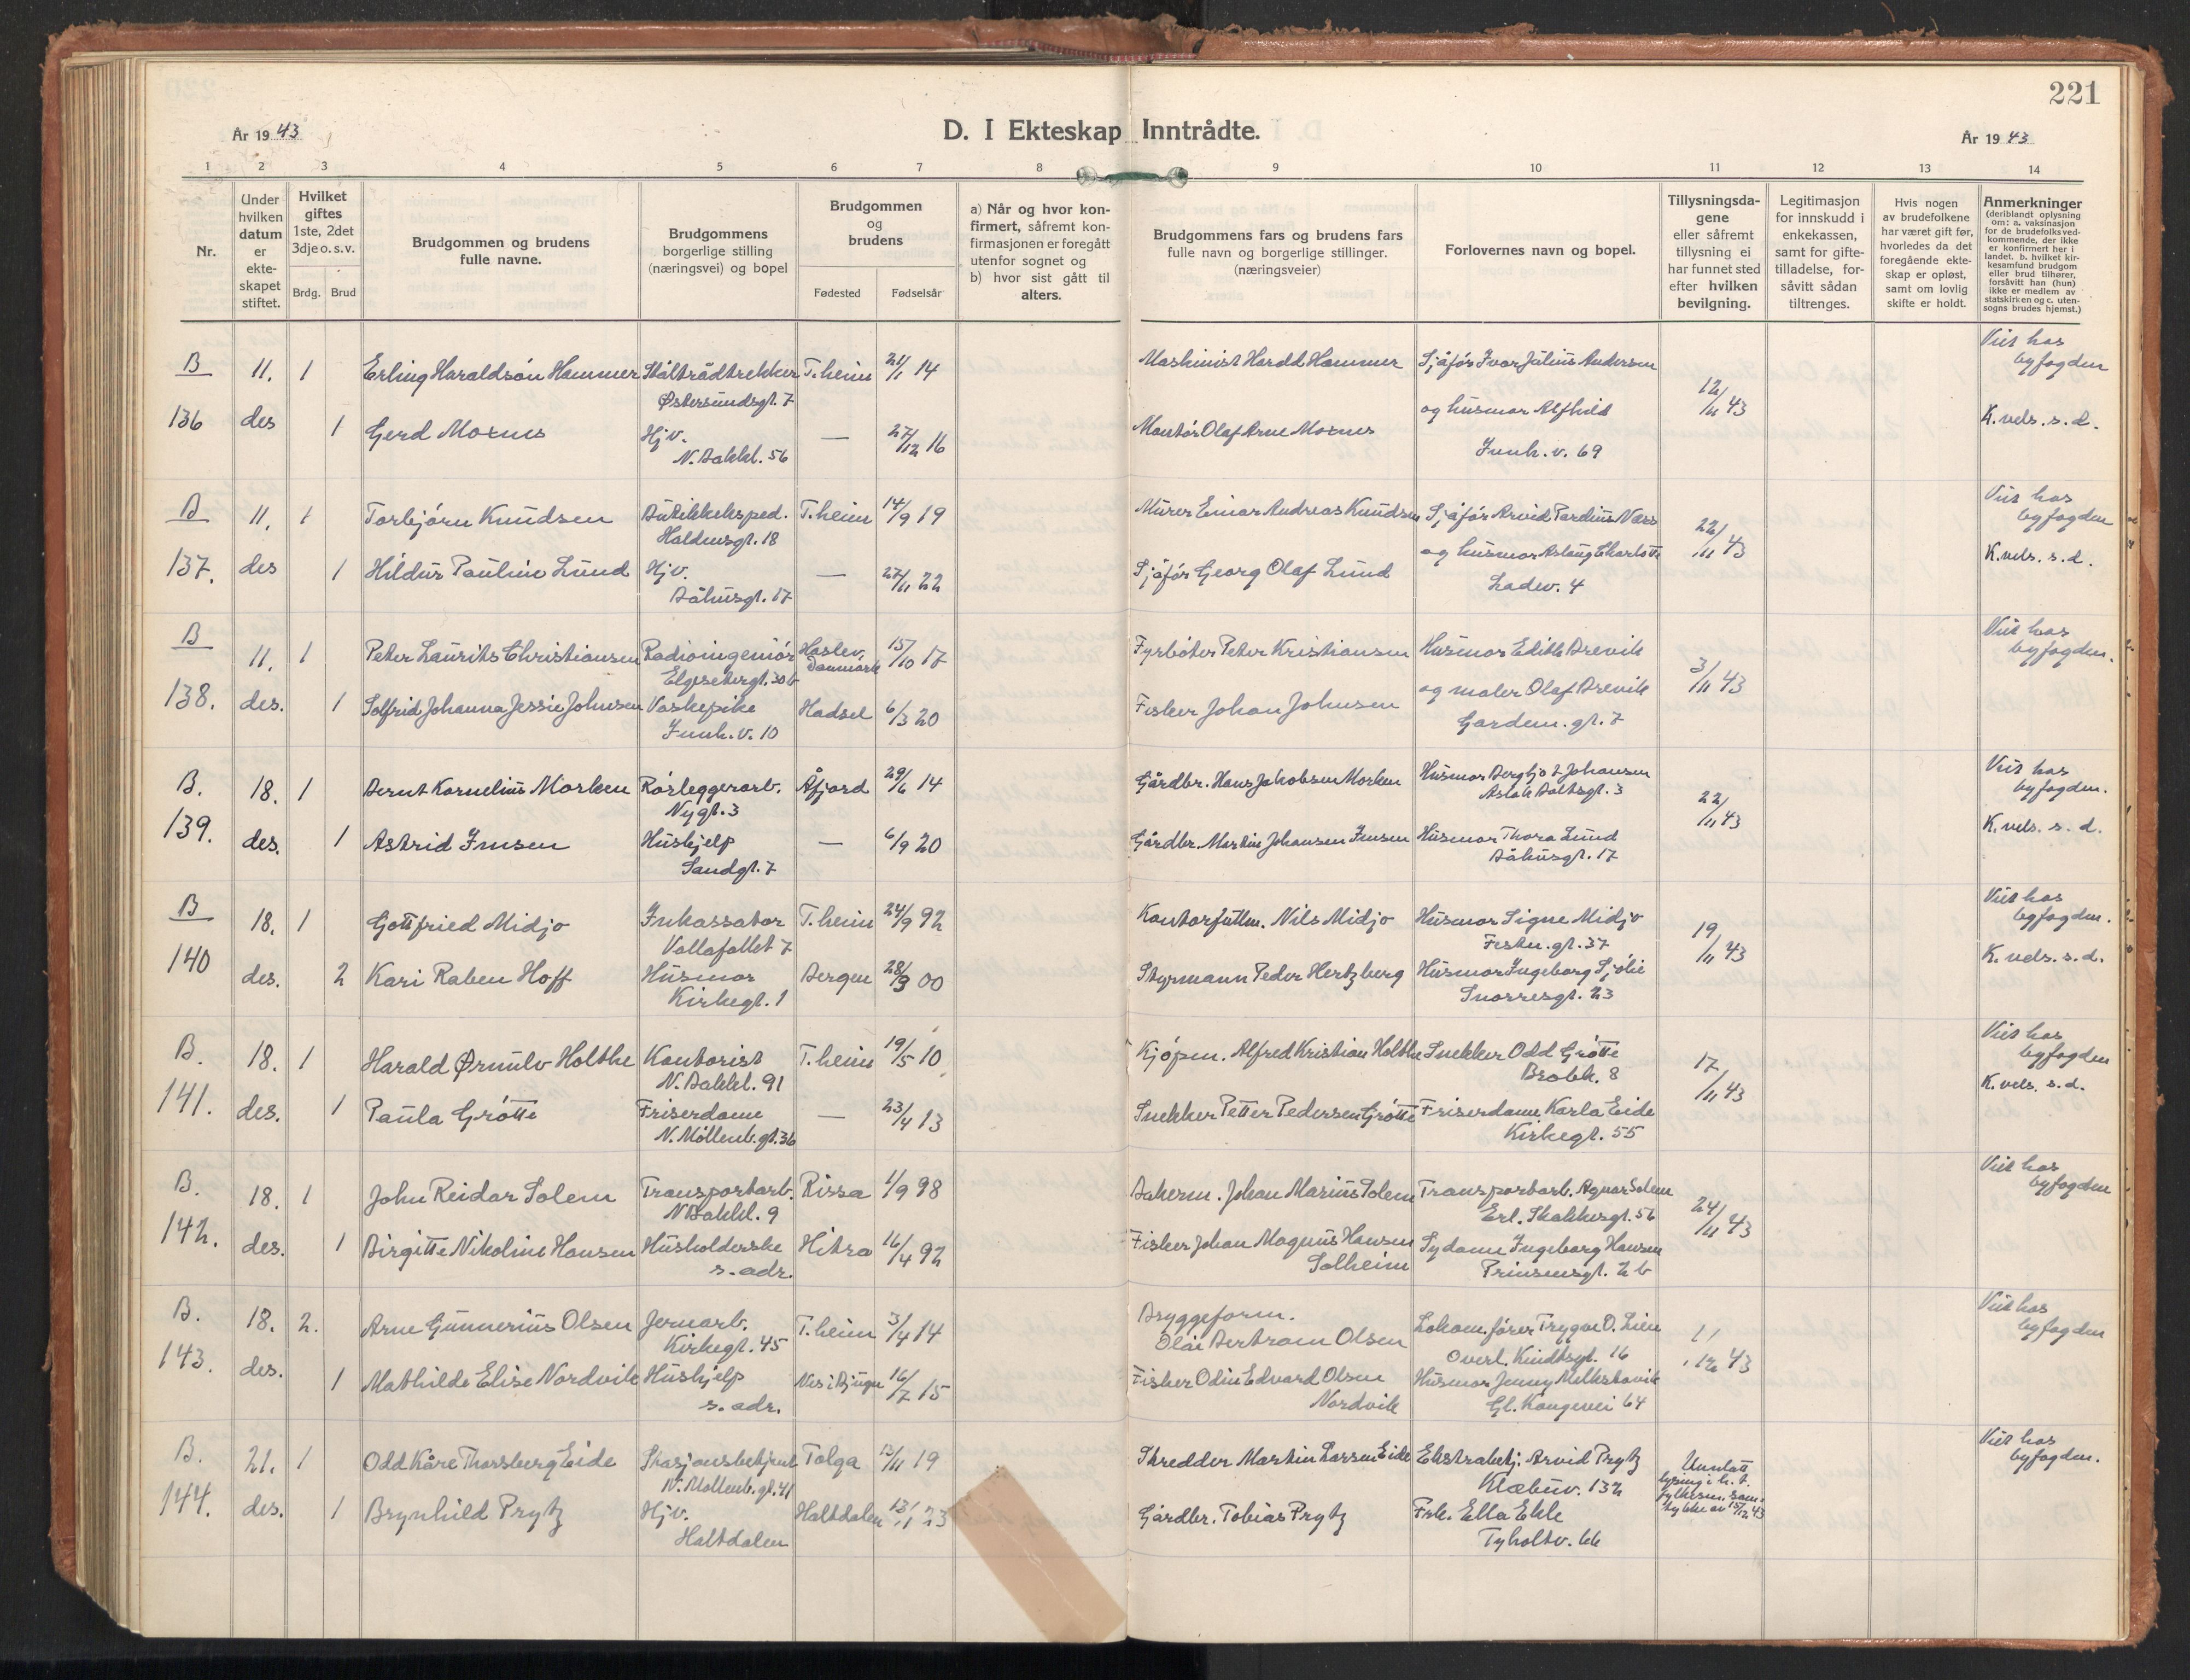 221
År 1943
D. I Ekteskap Inntrådte.
År 1943
1 2 3 4 5 6 7 8 9 10 11 12 13 14
Nr.
Under hvilken datum er ekte-skapet stiftet.
Hvilket giftes 1ste, 2det 3dje o.s.v.
Brdg. Brud
Brudgommen og brudens fulle navne.
Brudgommens borgerlige stilling (næringsvei) og bopel
Brudgommen og brudens
Fødested Fødselsår
a) Når og hvor kon-firmert, såfremt kon-firmasjonen er foregått utenfor sognet og b) hvor sist gått til alters.
Brudgommens fars og brudens fars fulle navn og borgerlige stillinger. (næringsveier)
Forlovernes navn og bopel.
Tillysningsda-gene eller såfremt tillysning ei har funnet sted efter hvilken bevilgning.
Legitimasjon for innskudd i enkekassen, samt for gifte-tilladelse, for-såvitt sådan tiltrenges.
Hvis nogen av brudefolkene har været gift før, hvorledes da det foregående ekte-skap er opløst, samt om lovlig skifte er holdt.
Anmerkninger (deriblandt oplysning om: a. vaksinasjon for de brudefolks ved-kommende, der ikke er konfirmert her i landet. b. hvilket kir-kesamfund brudgom eller brud tilhører, forsåvitt han (hun) ikke er medlem av statskirken og c. uten-sogns brudes hjemst.)
B 11. 1 Erling Haraldsøn Hammer Ståltrådtrekker T.heim 21/1 14 Maskinist Harald Hammer Sjåfør Ivar Julius Andersen Viet hos byfogden
Østersundsgt. 7 og husmor Alfhild 12/11 43
136 des 1 Gerd Moxnes Hjv. — 27/12 16 Montør Olaf Arne Moxnes K. vels. s. d.
N. Bakkl. 56 Innh. v. 69
B 11. 1 Torbjørn Knudsen Butikkeksped. T.heim 14/9 19 Murer Einar Andreas Knudsen Sjåfør Arvid Pardius Næss Viet hos byfogden
Haldensgt. 18 og husmor Aslaug Charlotte 22/11 43
137. des 1 Hildur Pauline Lund Hjv. — 27/11 22 Sjåfør Georg Olaf Lund K. vels. s. d.
Båhusgt. 17 Ladev. 4
B 11. 1 Peter Laurits Christiansen Radioingeniør Haslev, Danmark 15/10 17 Fyrbøter Peter Kristiansen Husmor Edith Brevik Viet hos byfogden.
Elgesetergt. 30 b og maler Olaf Brevik 3/11 43
138. des. 1 Solfrid Johanna Jessie Johnsen Vaskepike Hadsel 6/3 20 Fisker Johan Johnsen Gardem. gt. 7
Innh. v. 10
B. 18. 1 Bernt Kornelius Morken Rørleggerarb. Åfjord 29/6 14 Gårdbr. Hans Jakobsen Morken Husmor Bergljot Johansen Viet hos byfogden.
Nygt. 3 Aslak Boltsgt. 3 22/11 43
139. des. 1 Astrid Imsen Hushjelp — 6/9 20 Gårdbr. Martin Johansen Imsen Husmor Thora Lund K. vels. s. d.
Sandgt. 7 Båhusgt. 17
B 18. 1 Gottfried Midjo Inkassator T.heim 24/9 92 Kontorfullm. Nils Midjo Husmor Signe Midjo Viet hos byfogden.
Vollafallet 7 Festn. gt. 37 19/11 43
140 des. 2 Kari Raben Hoff Husmor Bergen 28/9 00 Styrmann Peder Hertzberg Husmor Ingeborg Sjølie K. vels. s. d.
Kirkegt. 1 Snorresgt. 23
B. 18. 1 Harald Ørnulv Holthe Kontorist T.heim 19/5 10 Kjøpm. Alfred Kristian Holthe Snekker Odd Grøtte Viet hos byfogden
N. Bakkl. 91 Brobk. 8 17/11 43
141. des. 1 Paula Grøtte Friserdame — 23/4 13 Snekker Petter Pedersen Grøtte Friserdame Karla Eide K. vels. s. d.
N. Møllenb. gt. 36 Kirkegt. 55
B. 18. 1 John Reidar Solem Transportarb. Rissa 1/9 98 Bakerm. Johan Marius Solem Transportarb. Agnar Solem Viet hos byfogden
N Bakkl. 9 Erl. Skakkesgt. 56 24/11 43
142. des. 1 Birgitte Nikoline Hansen Husholderske Hitra 16/4 92 Fisker Johan Magnus Hansen Solheim Sydame Ingeborg Hansen
s. adr. Prinsensgt. 2 b
B. 18. 2. Arne Gunnerius Olsen Jernarb. T.heim 3/4 14 Bryggeform. Olai Bertram Olsen Lokom.fører Trygve O. Lien Viet hos byfogden
Kirkegt. 45 Overl. Kindtsgt. 16 1/12 43
143. des. 1 Mathilde Elise Nordvik Hushjelp Nes i Bjugn 16/7 15 Fisker Odin Edvard Olsen Nordvik Husmor Jenny Melkstavik
s. adr. Gl. Kongevei 64
B. 21. 1 Odd Kåre Thorsberg Eide Stasjonsbetjent Tolga 12/11 19 Skredder Martin Larsen Eide Ekstrabetj. Arvid Prytz Viet hos byfogden.
N. Møllenb. gt. 41 Klæbuv. 132 Unnlatt lysing i h. t. fylkesm. sam-tykke av 15/12 43
144. des. 1 Brynhild Prytz Hjv. Haltdalen 13/1 23 Gårdbr. Tobias Prytz Frk. Ella Ekle
Haltdalen Tyholtv. 66